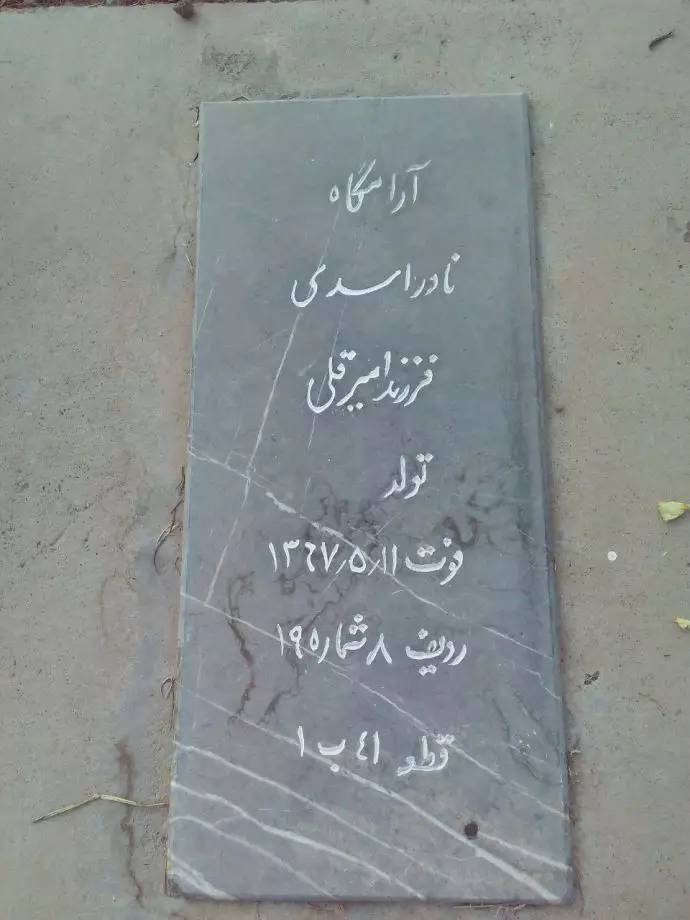 آرامگاه
نادر اسدی
فرزند امیرقلی
تولد
فوت ۱۳۶۷٫۵٫۱۱
ردیف ۸ شماره ۱۹
قطعه ۴۱ ب ۱